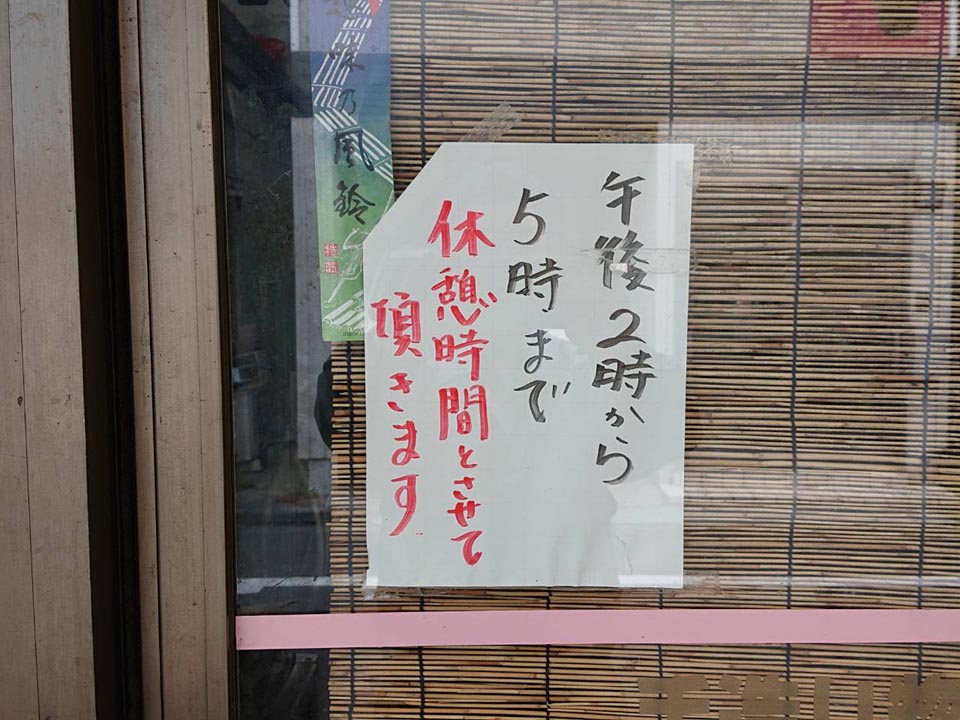 午後2時から
5時まで
休憩時間とさせて
頂きます
味乃風鈴